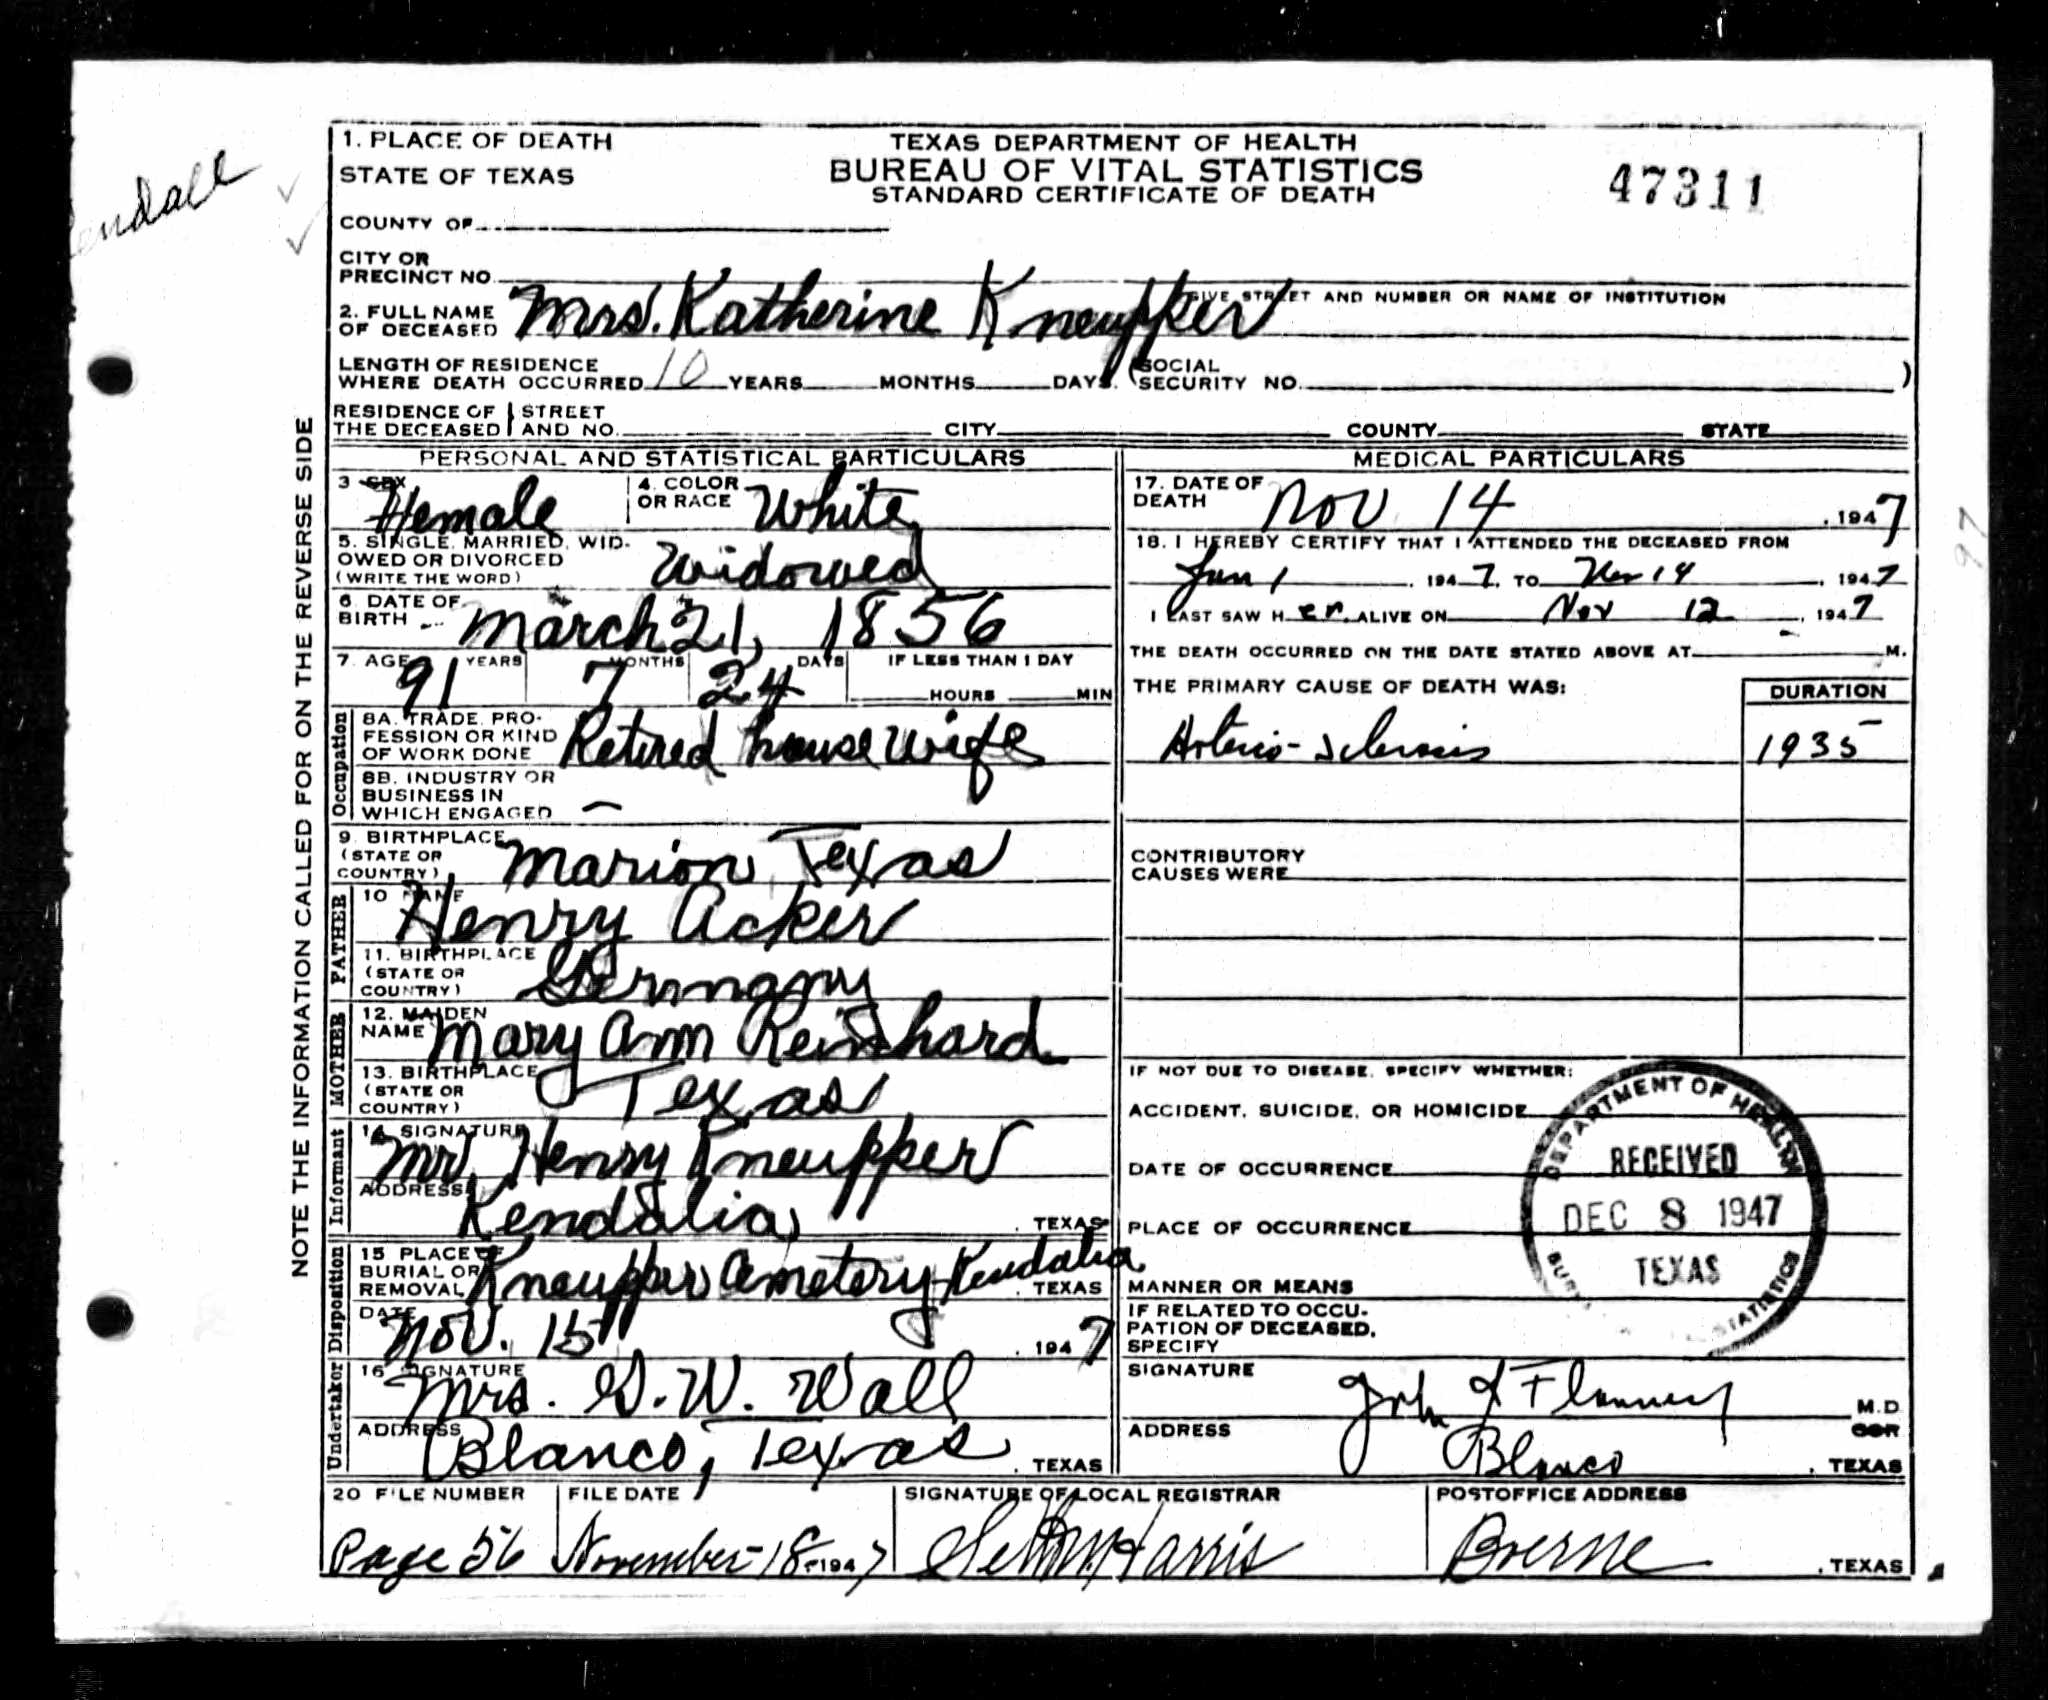 endall
1. PLACE OF DEATH
STATE OF TEXAS
TEXAS DEPARTMENT OF HEALTH
BUREAU OF VITAL STATISTICS
STANDARD CERTIFICATE OF DEATH
47311
COUNTY OF
CITY OR
PRECINCT NO.
GIVE STREET AND NUMBER OR NAME OF INSTITUTION
2. FULL NAME
OF DECEASED Mrs. Katherine Kneupper
LENGTH OF RESIDENCE
WHERE DEATH OCCURRED 10 YEARS MONTHS DAYS. (SOCIAL
SECURITY NO. )
RESIDENCE OF STREET
THE DECEASED AND NO. CITY COUNTY STATE
NOTE THE INFORMATION CALLED FOR ON THE REVERSE SIDE
PERSONAL AND STATISTICAL PARTICULARS
3 SEX Female
4. COLOR
OR RACE White
5. SINGLE, MARRIED, WID-
OWED OR DIVORCED
(WRITE THE WORD) Widowed
6. DATE OF
BIRTH March 21, 1856
7. AGE 91 YEARS 7 MONTHS 24 DAYS IF LESS THAN 1 DAY
HOURS MIN
Occupation
8A. TRADE, PRO-
FESSION OR KIND
OF WORK DONE Retired house wife
8B. INDUSTRY OR
BUSINESS IN
WHICH ENGAGED —
9. BIRTHPLACE
(STATE OR
COUNTRY) Marion, Texas
FATHER
10 NAME Henry Acker
11. BIRTHPLACE
(STATE OR
COUNTRY) Germany
MOTHER
12. MAIDEN
NAME Mary Ann Reinhard
13. BIRTHPLACE
(STATE OR
COUNTRY) Texas
Informant
14 SIGNATURE Mr. Henry Kneupper
ADDRESS Kendalia, , TEXAS
Disposition
15 PLACE OF
BURIAL OR
REMOVAL Kneupper Cemetery Kendalia , TEXAS
DATE Nov. 15 , 1947
Undertaker
16 SIGNATURE Mrs. G. W. Wall
ADDRESS Blanco, Texas , TEXAS
MEDICAL PARTICULARS
17. DATE OF
DEATH Nov 14 , 1947
18. I HEREBY CERTIFY THAT I ATTENDED THE DECEASED FROM
Jan 1 , 1947, TO Nov 14 , 1947
I LAST SAW H er. ALIVE ON Nov 12 , 1947
THE DEATH OCCURRED ON THE DATE STATED ABOVE AT M.
THE PRIMARY CAUSE OF DEATH WAS: DURATION
Arterio-sclerosis 1935
CONTRIBUTORY
CAUSES WERE
IF NOT DUE TO DISEASE, SPECIFY WHETHER:
ACCIDENT, SUICIDE, OR HOMICIDE
DATE OF OCCURRENCE
PLACE OF OCCURRENCE
MANNER OR MEANS
DEPARTMENT OF HEALTH
RECEIVED
DEC 8 1947
TEXAS
STATISTICS
IF RELATED TO OCCU-
PATION OF DECEASED,
SPECIFY
SIGNATURE John Flannery M.D
ADDRESS Blanco , TEXAS
97
20 FILE NUMBER FILE DATE SIGNATURE OF LOCAL REGISTRAR POSTOFFICE ADDRESS
Page 56 November-18-1947 Harris Boerne , TEXAS